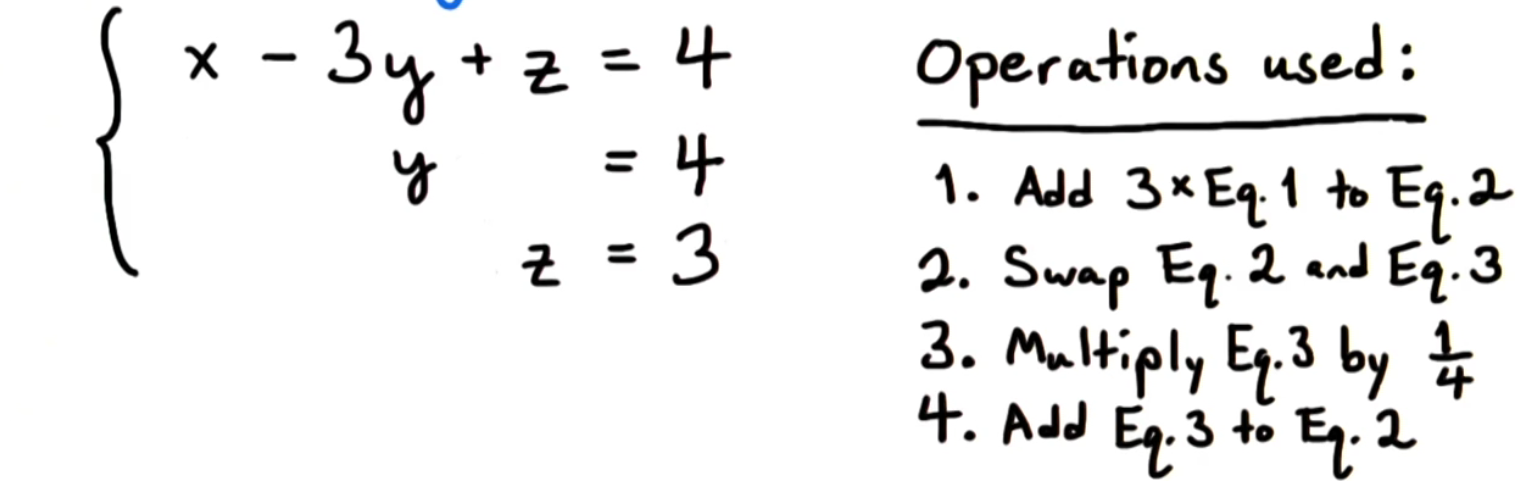 x - 3y + z = 4
y = 4
z = 3
Operations used:
1. Add 3×Eq.1 to Eq.2
2. Swap Eq.2 and Eq.3
3. Multiply Eq.3 by 1/4
4. Add Eq.3 to Eq.2